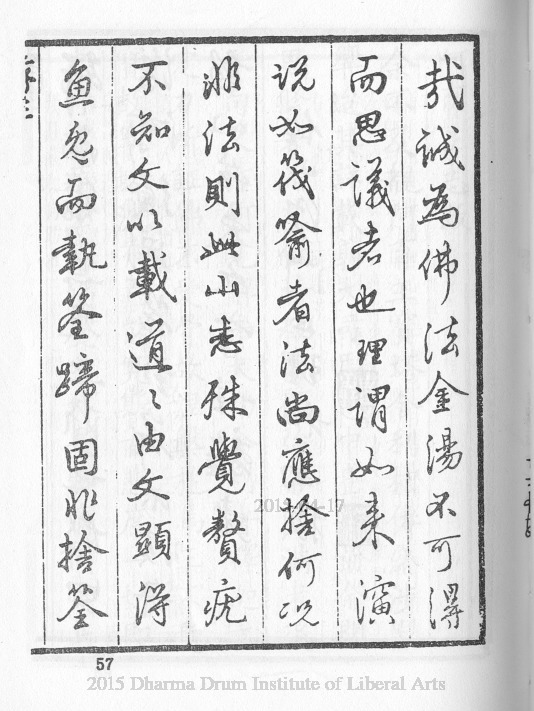 哉誠為佛法金湯不可得
而思議者也理謂如来演
說如筏喻者法尚應捨何况
非法則此山志殊覺贅疣
不知文以載道〻由文顯得
魚兔而執筌蹄固非捨筌
57
2015 Dharma Drum Institute of Liberal Arts